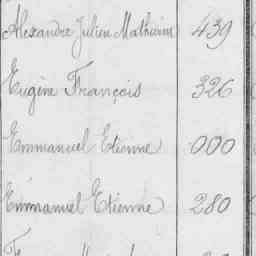 Alexandre Julien Mathurin 439
Eugène François 326
Emmanuel Etienne 000
Emmanuel Etienne 280